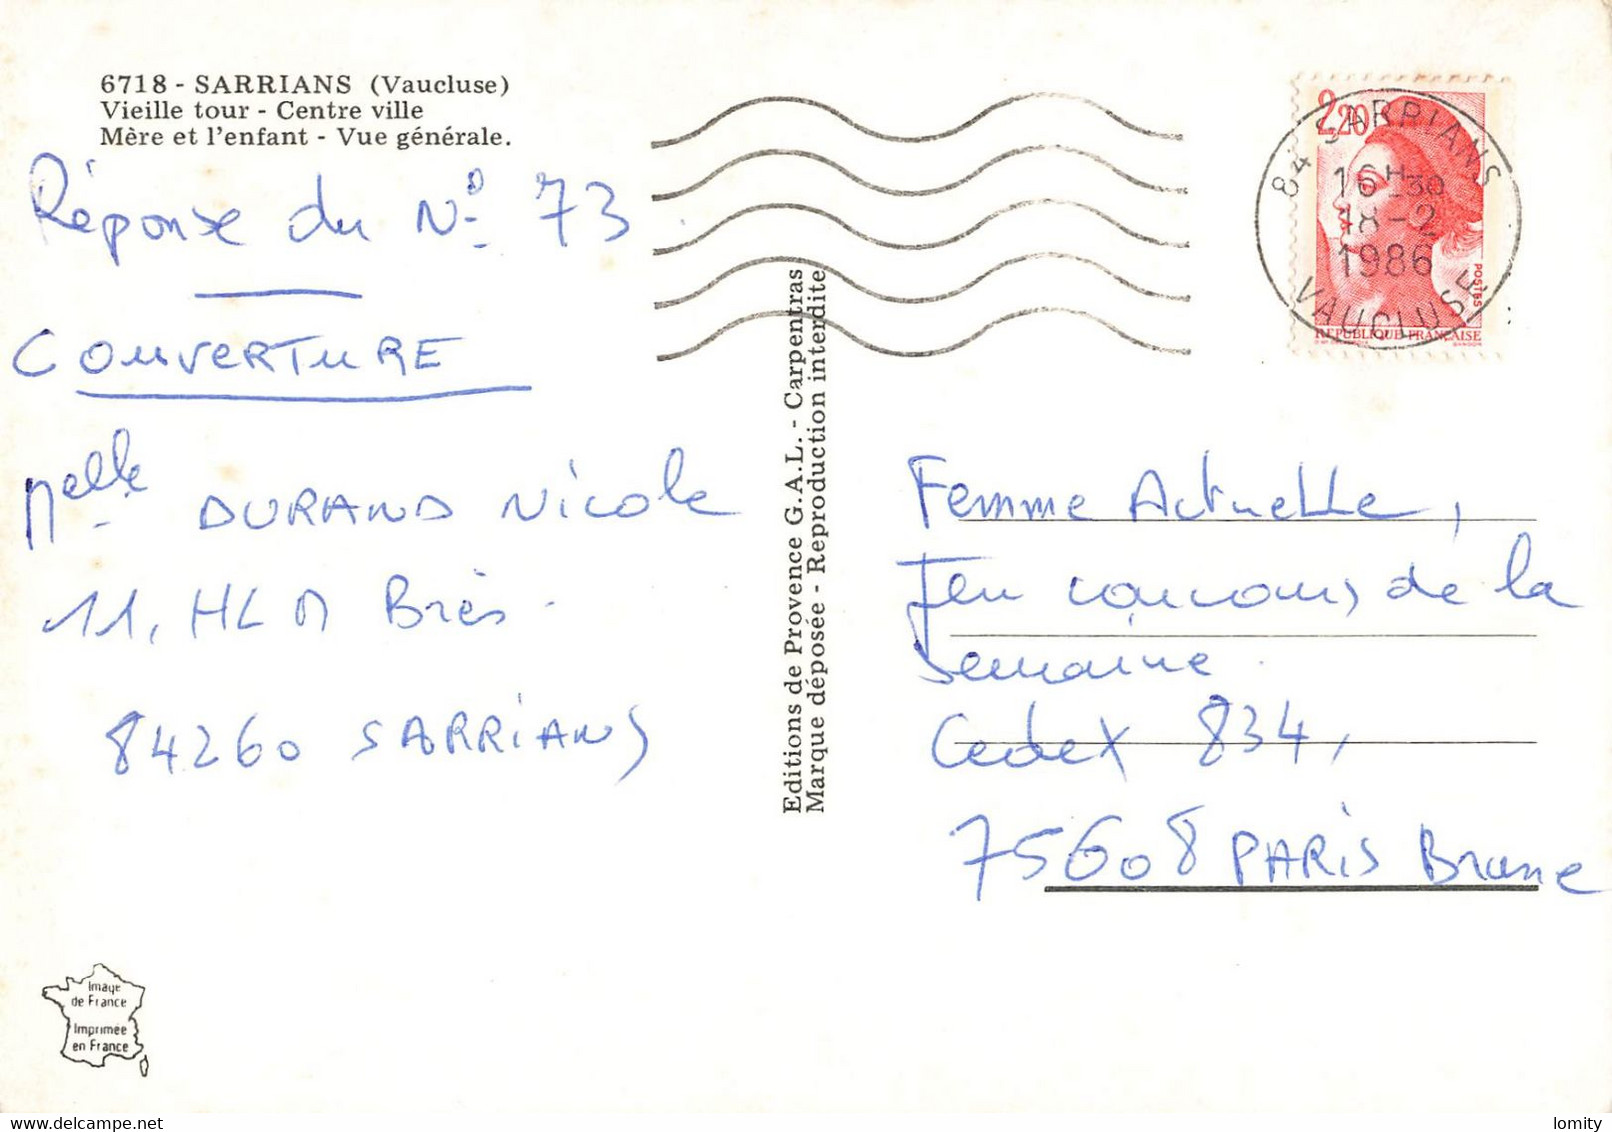 6718 - SARRIANS (Vaucluse)
Vieille tour - Centre ville
Mère et l'enfant - Vue générale.
Réponse du No 73
COUVERTURE
Melle DURAND Nicole
11, HLM Brès.
84260 SARRIANS
Image
de France
Imprimée
en France
Editions de Provence G.A.L. - Carpentras
Marque déposée - Reproduction interdite
2,20
POSTES
REPUBLIQUE FRANÇAISE
84 SARRIANS
16H30
18-2
1986
VAUCLUSE
Femme Actuelle,
Jeu concours de la
Semaine.
Cedex 834,
75608 PARIS Brune
lomity